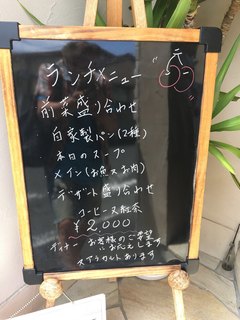 ランチメニュー
前菜盛り合わせ
自家製パン(2種)
本日のスープ
メイン(お魚又お肉)
デザート盛り合わせ
コーヒー又紅茶
¥2,000
ディナー お客様のご要望
にお応えします
アラカルトあります